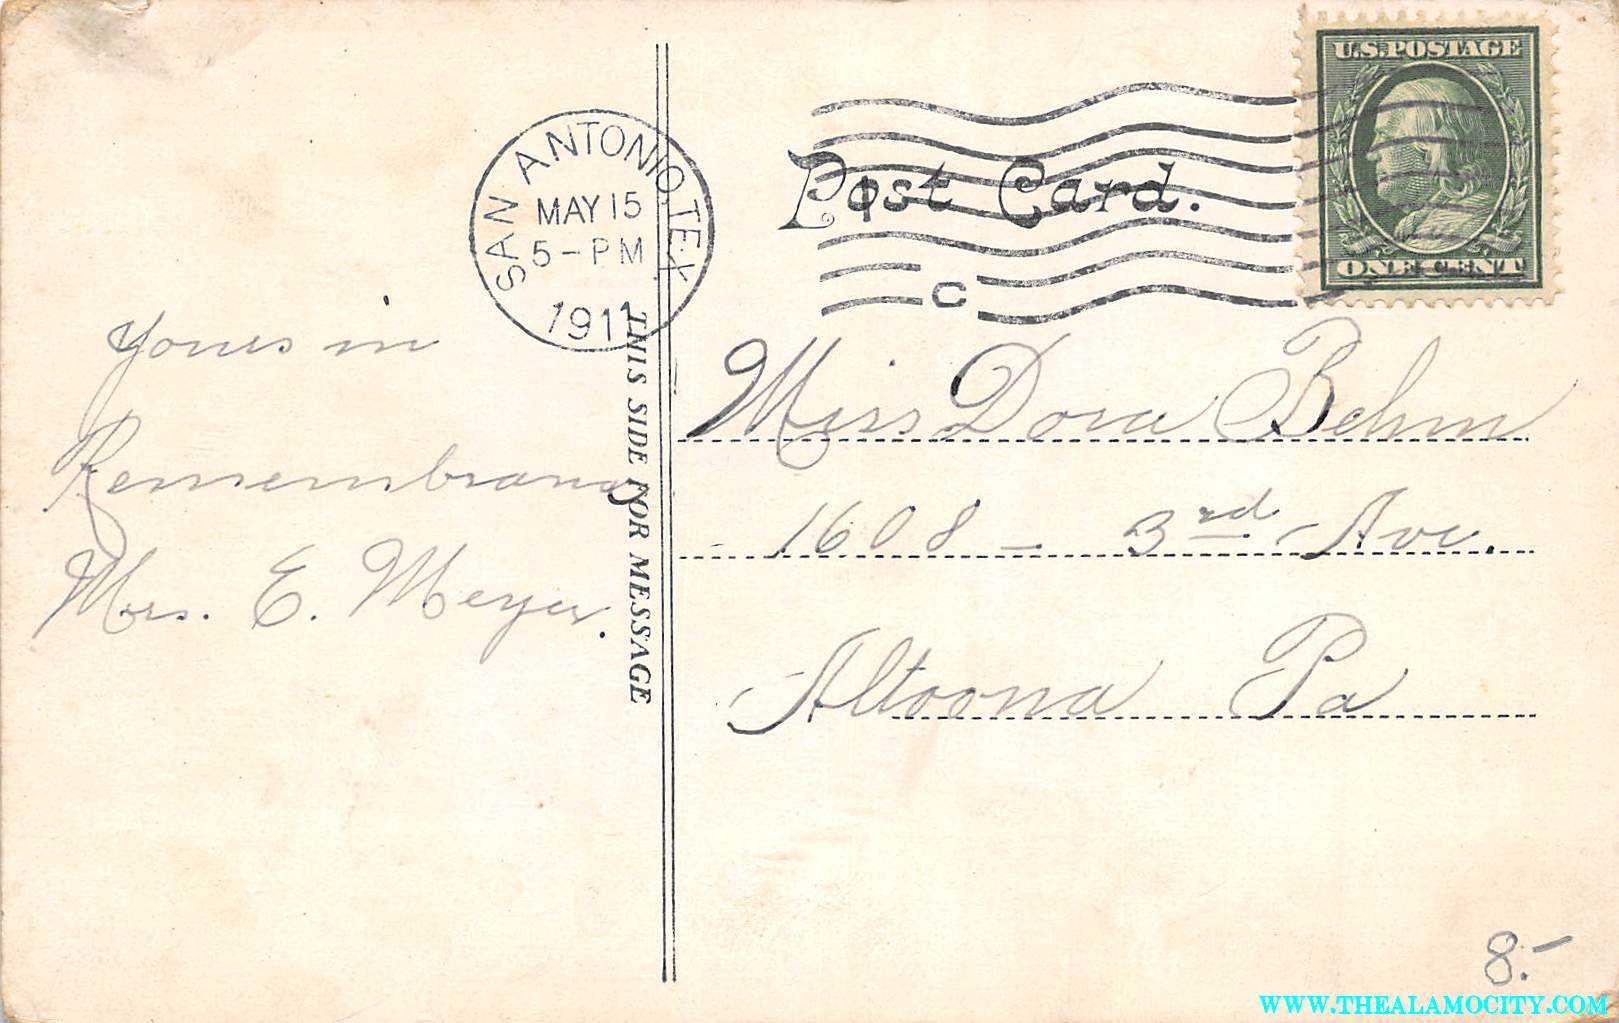 U.S. POSTAGE
ONE CENT
SAN ANTONIO, TEX
MAY 15
5-PM
1911
C
Post Card.
THIS SIDE FOR MESSAGE
Yours in
Remembrance
Mrs. E. Meyer.
Miss Dora Behm
1608 - 3rd Ave.
Altoona Pa
8.-
WWW.THEALAMOCITY.COM